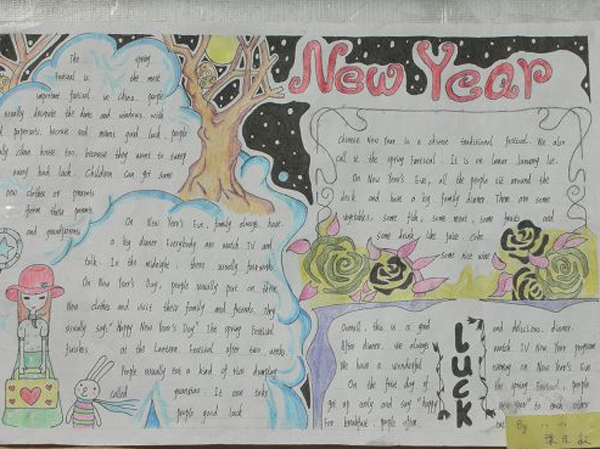 The spring
festival is the most
important festival in China. people
usually decorate the doors and windows with
papercuts. because red means good luck. people
clean house too. because they want to sweep
away bad luck. Children can get some
new clothes or presents
form these parents
and grandparents.
On New Year's Eve, family always have
a big dinner. Everybody are watch TV and
talk. In the midnight, there usually fireworks
On New Year's Day, people usually put on their
New clothes and visit their family and friends. They
usually says "Happy New Year's Day". The spring Festival
finishes at the Lantern Festival after two weeks.
People usually eat a kind of rice dumpling
called yuanxiao. It can take
people good luck
New Year
Chinese New Year is a chinese traditional festival. We also
call it the spring Festival. It is on lunar January 1st.
On New Year's Eve, all the people sit around the
desk and have a big family dinner. There are some
vegetables, some fish, some meat, some fruits and
some drink like juice coke
some rice wine
Overall, this is a good and delicious dinner.
After dinner, we always watch TV New program
We have a wonderful evening on New Year's Eve
On the first day of the spring Festival, people
get up early and say "happy new year" to each other
For breakfast, people often eat
luck
By